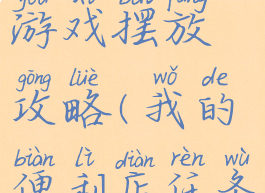 yóu xì bǎi fàng
游戏摆放
gōng lüè wǒ de
攻略(我的
biàn lì diàn rèn wù
便利店任务